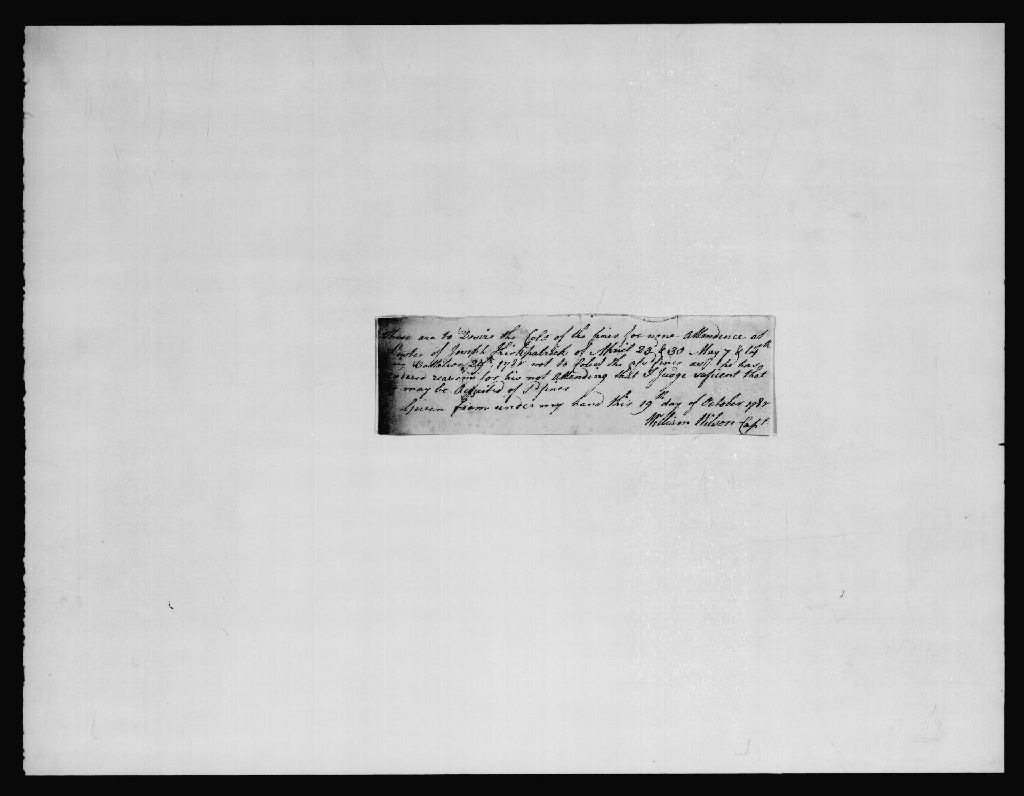 These are to Desire the Col's of the fines for none attendence at
Muster of Joseph Kirkpatrick of April 23 & 30 May 7 & 14th
Battalion 24th 1782 not to Colect the sd fines as he has
reasons for his not Attending that I Judge suficent that
may be Acquited of sd fines
Given from under my hand this 19th day of October 1782
William Wilson Capt